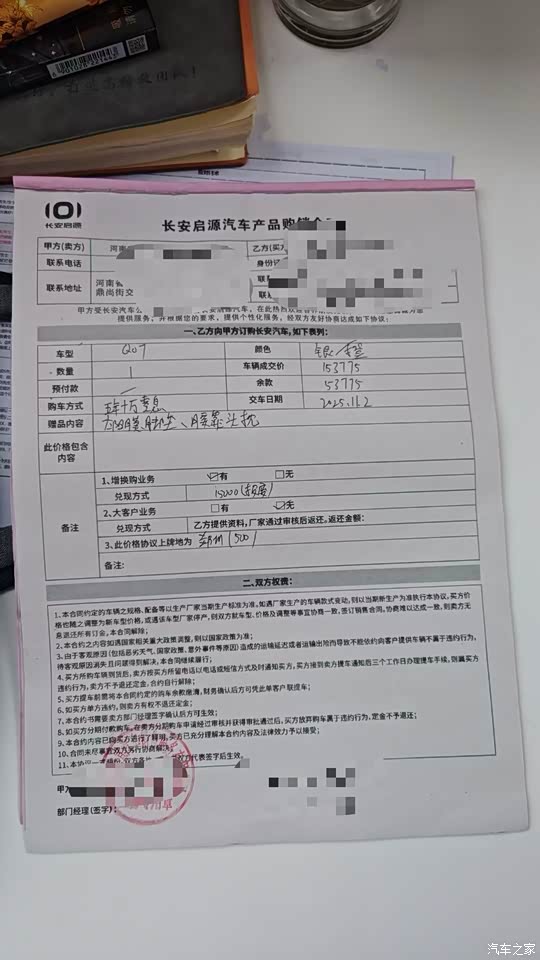 长安启源
长安启源汽车产品购销合
甲方(卖方) 河南 乙方(买方
联系电话 身份
联系地址 河南省
鼎尚街交
提供服务,并根据您的要求,提供个性化服务,经双方友好协商达成如下协议:
一、乙方向甲方订购长安汽车,如下表列:
车型 Q07 颜色 银
数量 1 车辆成交价 153775
预付款 余款 53775
购车方式 交车日期 2025.11.2
赠品内容 太阳膜 脚垫、腰靠头枕
此价格包含
内容
备注
1、增换购业务 ☑有 □无
兑现方式 15000
2、大客户业务 □有 ☑无
兑现方式 乙方提供资料,厂家通过审核后返还,返还金额:
3、此价格协议上牌地为 郑州(500)
备注:
二、双方权责:
1、本合同约定的车辆之规格、配备等以生产厂家当期生产标准为准,如遇厂家生产的车辆款式变动,则以当期新生产为准执行本协议,买方价
格也随之调整为新车型价格,或遇该车型厂家停产,则双方就车型、价格及调整等事宜协商一致,签订销售合同,协商难以达成一致,则卖方无
息返还所有订金,本合同解除;
2、本合约之内容如遇国家相关重大政策调整,则以国家政策为准;
3、由于客观原因(包括恶劣天气、国家政策、意外事件等原因)造成的运输延迟或者运输出险而导致不能依约向客户提供车辆不属于违约行为,
待客观原因消失且问题得到解决,本合同继续履行;
4、买方所购车辆到货后,卖方按买方所留电话以电话或短信方式及时通知买方,买方接到卖方提车通知后三个工作日办理提车手续,则属买方
违约行为,卖方不予退还定金,合约自行解除;
5、买方提车前需将本合同约定的购车余款缴清,财务确认后方可凭此单客户联提车;
6、如买方单方违约,则卖方有权不退还定金;
7、本合约书需要卖方部门经理签字确认后方可生效;
8、如买方分期付款购车,在卖方分期购车申请经过审核并获得审批通过后,买方放弃购车属于违约行为,定金不予退还;
9、本合约内容已向买方进行了释明,买方已充分理解本合约内容及法律效力予以接受;
10、合同未尽事宜双方另行协商解决;
11、本协议一式 双方 代表签字后生效。
甲方
部门经理(签字):
汽车之家